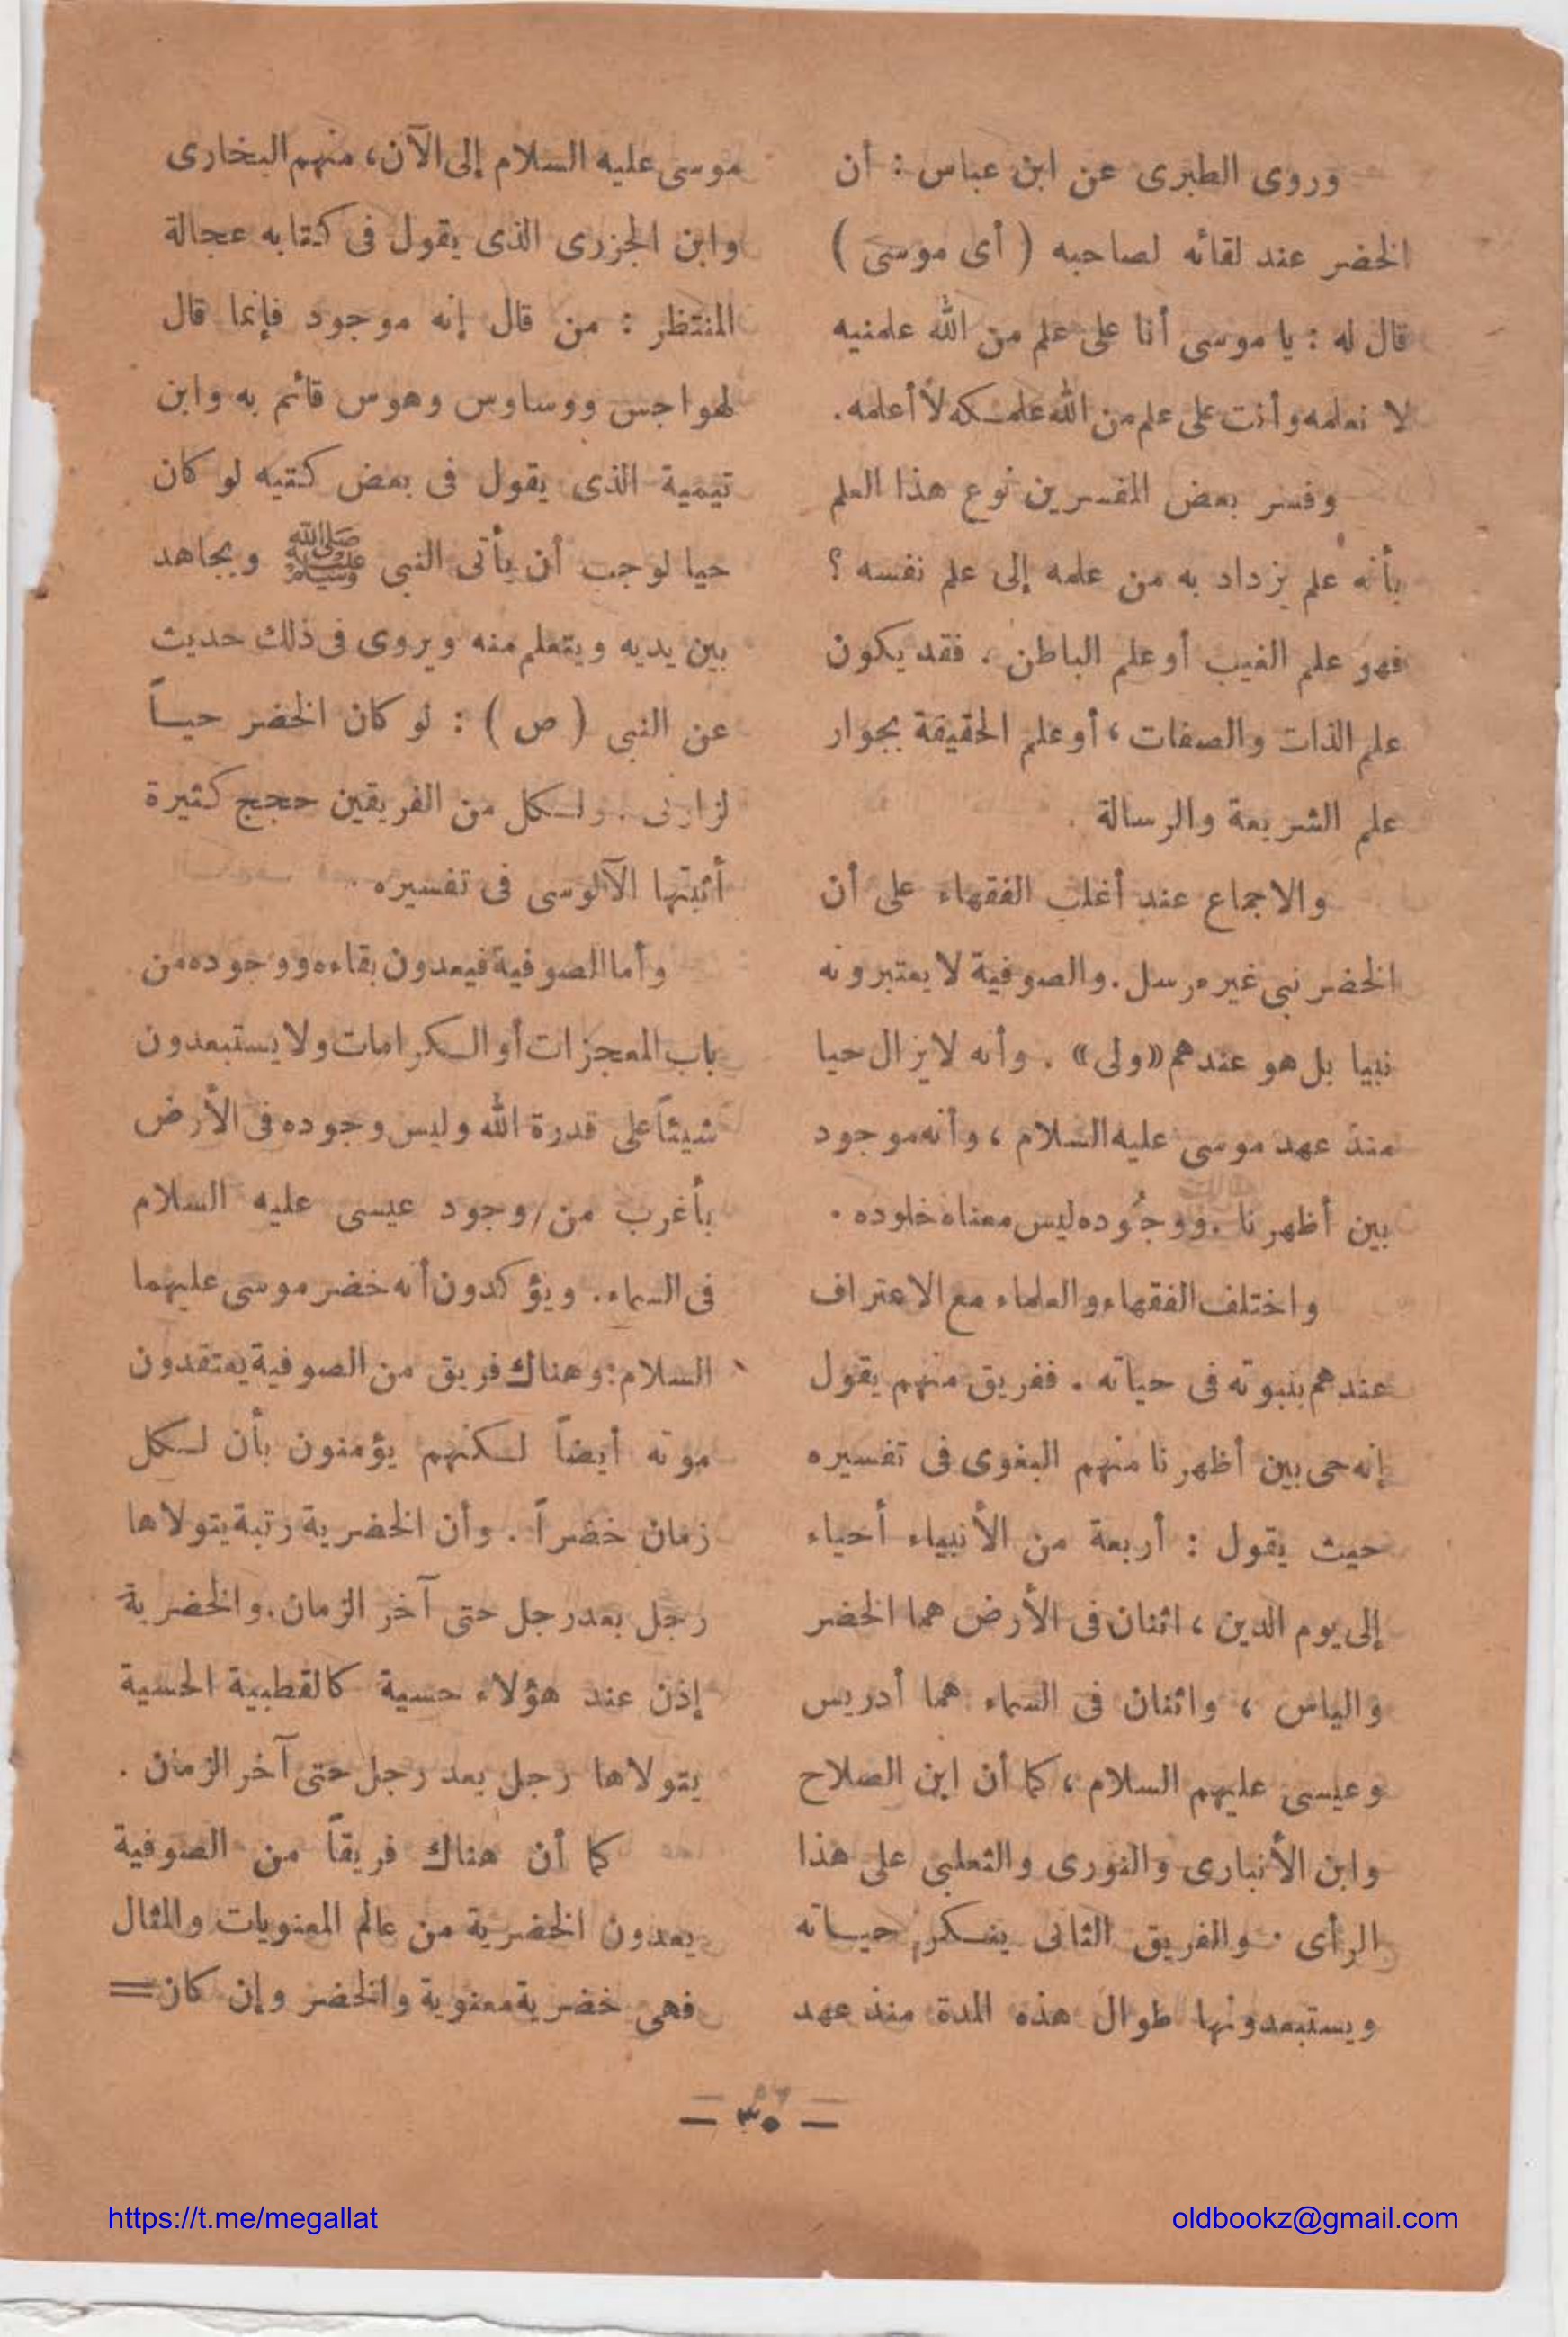 وروى الطبرى عن ابن عباس : أن
الخضر عند لقائه لصاحبه ( أى موسى )
قال له : يا موسى أنا على علم من الله علمنيه
لا نعلمه وأنت على علم من الله علمكه لا أعلمه .
وفسر بعض المفسرين نوع هذا العلم
بأنه علم يزداد به من علمه إلى علم نفسه ؟
فهو علم الغيب أو علم الباطن . فقد يكون
علم الذات والصفات ، أو علم الحقيقة بجوار
علم الشريعة والرسالة .
والاجماع عند أغلب الفقهاء على أن
الخضر نبى غير مرسل . والصوفية لا يعتبرونه
نبيا بل هو عندهم «ولى» . وأنه لايزال حيا
منذ عهد موسى عليه السلام ، وأنه موجود
بين أظهرنا . ووجوده ليس معناه خلوده .
واختلف الفقهاء والعلماء مع الاعتراف
عندهم بنبوته فى حياته . ففريق منهم يقول
إنه حى بين أظهرنا منهم البغوى فى تفسيره
حيث يقول : أربعة من الأنبياء أحياء
إلى يوم الدين ، اثنان فى الأرض هما الخضر
والياس ، واثنان فى السماء هما أدريس
وعيسى عليهم السلام ، كما أن ابن الصلاح
وابن الأنبارى والنورى والثعلبى على هذا
الرأى . والفريق الثانى ينكر حياته
ويستبعدونها طوال هذه المدة منذ عهد
موسى عليه السلام إلى الآن ، منهم البخارى
وابن الجزرى الذى يقول فى كتابه عجالة
المنتظر : من قال إنه موجود فإنما قال
لهواجس ووساوس وهوس قائم به وابن
تيمية الذى يقول فى بعض كتبه لو كان
حيا لوجب أن يأتى النبى ﷺ ويجاهد
بين يديه ويتعلم منه ويروى فى ذلك حديث
عن النبى ( ص ) : لو كان الخضر حياً
لزارنى . ولكل من الفريقين حجج كثيرة
أثبتها الآلوسى فى تفسيره .
وأما الصوفية فيعدون بقاءه ووجوده من
باب المعجزات أو الكرامات ولا يستبعدون
شيئاً على قدرة الله وليس وجوده فى الأرض
بأغرب من وجود عيسى عليه السلام
فى السماء . ويؤكدون أنه خضر موسى عليهما
السلام : وهناك فريق من الصوفية يعتقدون
موته أيضاً لكنهم يؤمنون بأن لكل
زمان خضراً . وأن الخضرية رتبة يتولاها
رجل بعد رجل حتى آخر الزمان . والخضرية
إذن عند هؤلاء حسية كالقطبية الحسية
يتولاها رجل بعد رجل حتى آخر الزمان .
كما أن هناك فريقاً من الصوفية
يعدون الخضرية من عالم المعنويات والمثال
فهى خضرية معنوية والخضر وإن كان =
— ٣٠ —
https://t.me/megallat
oldbookz@gmail.com